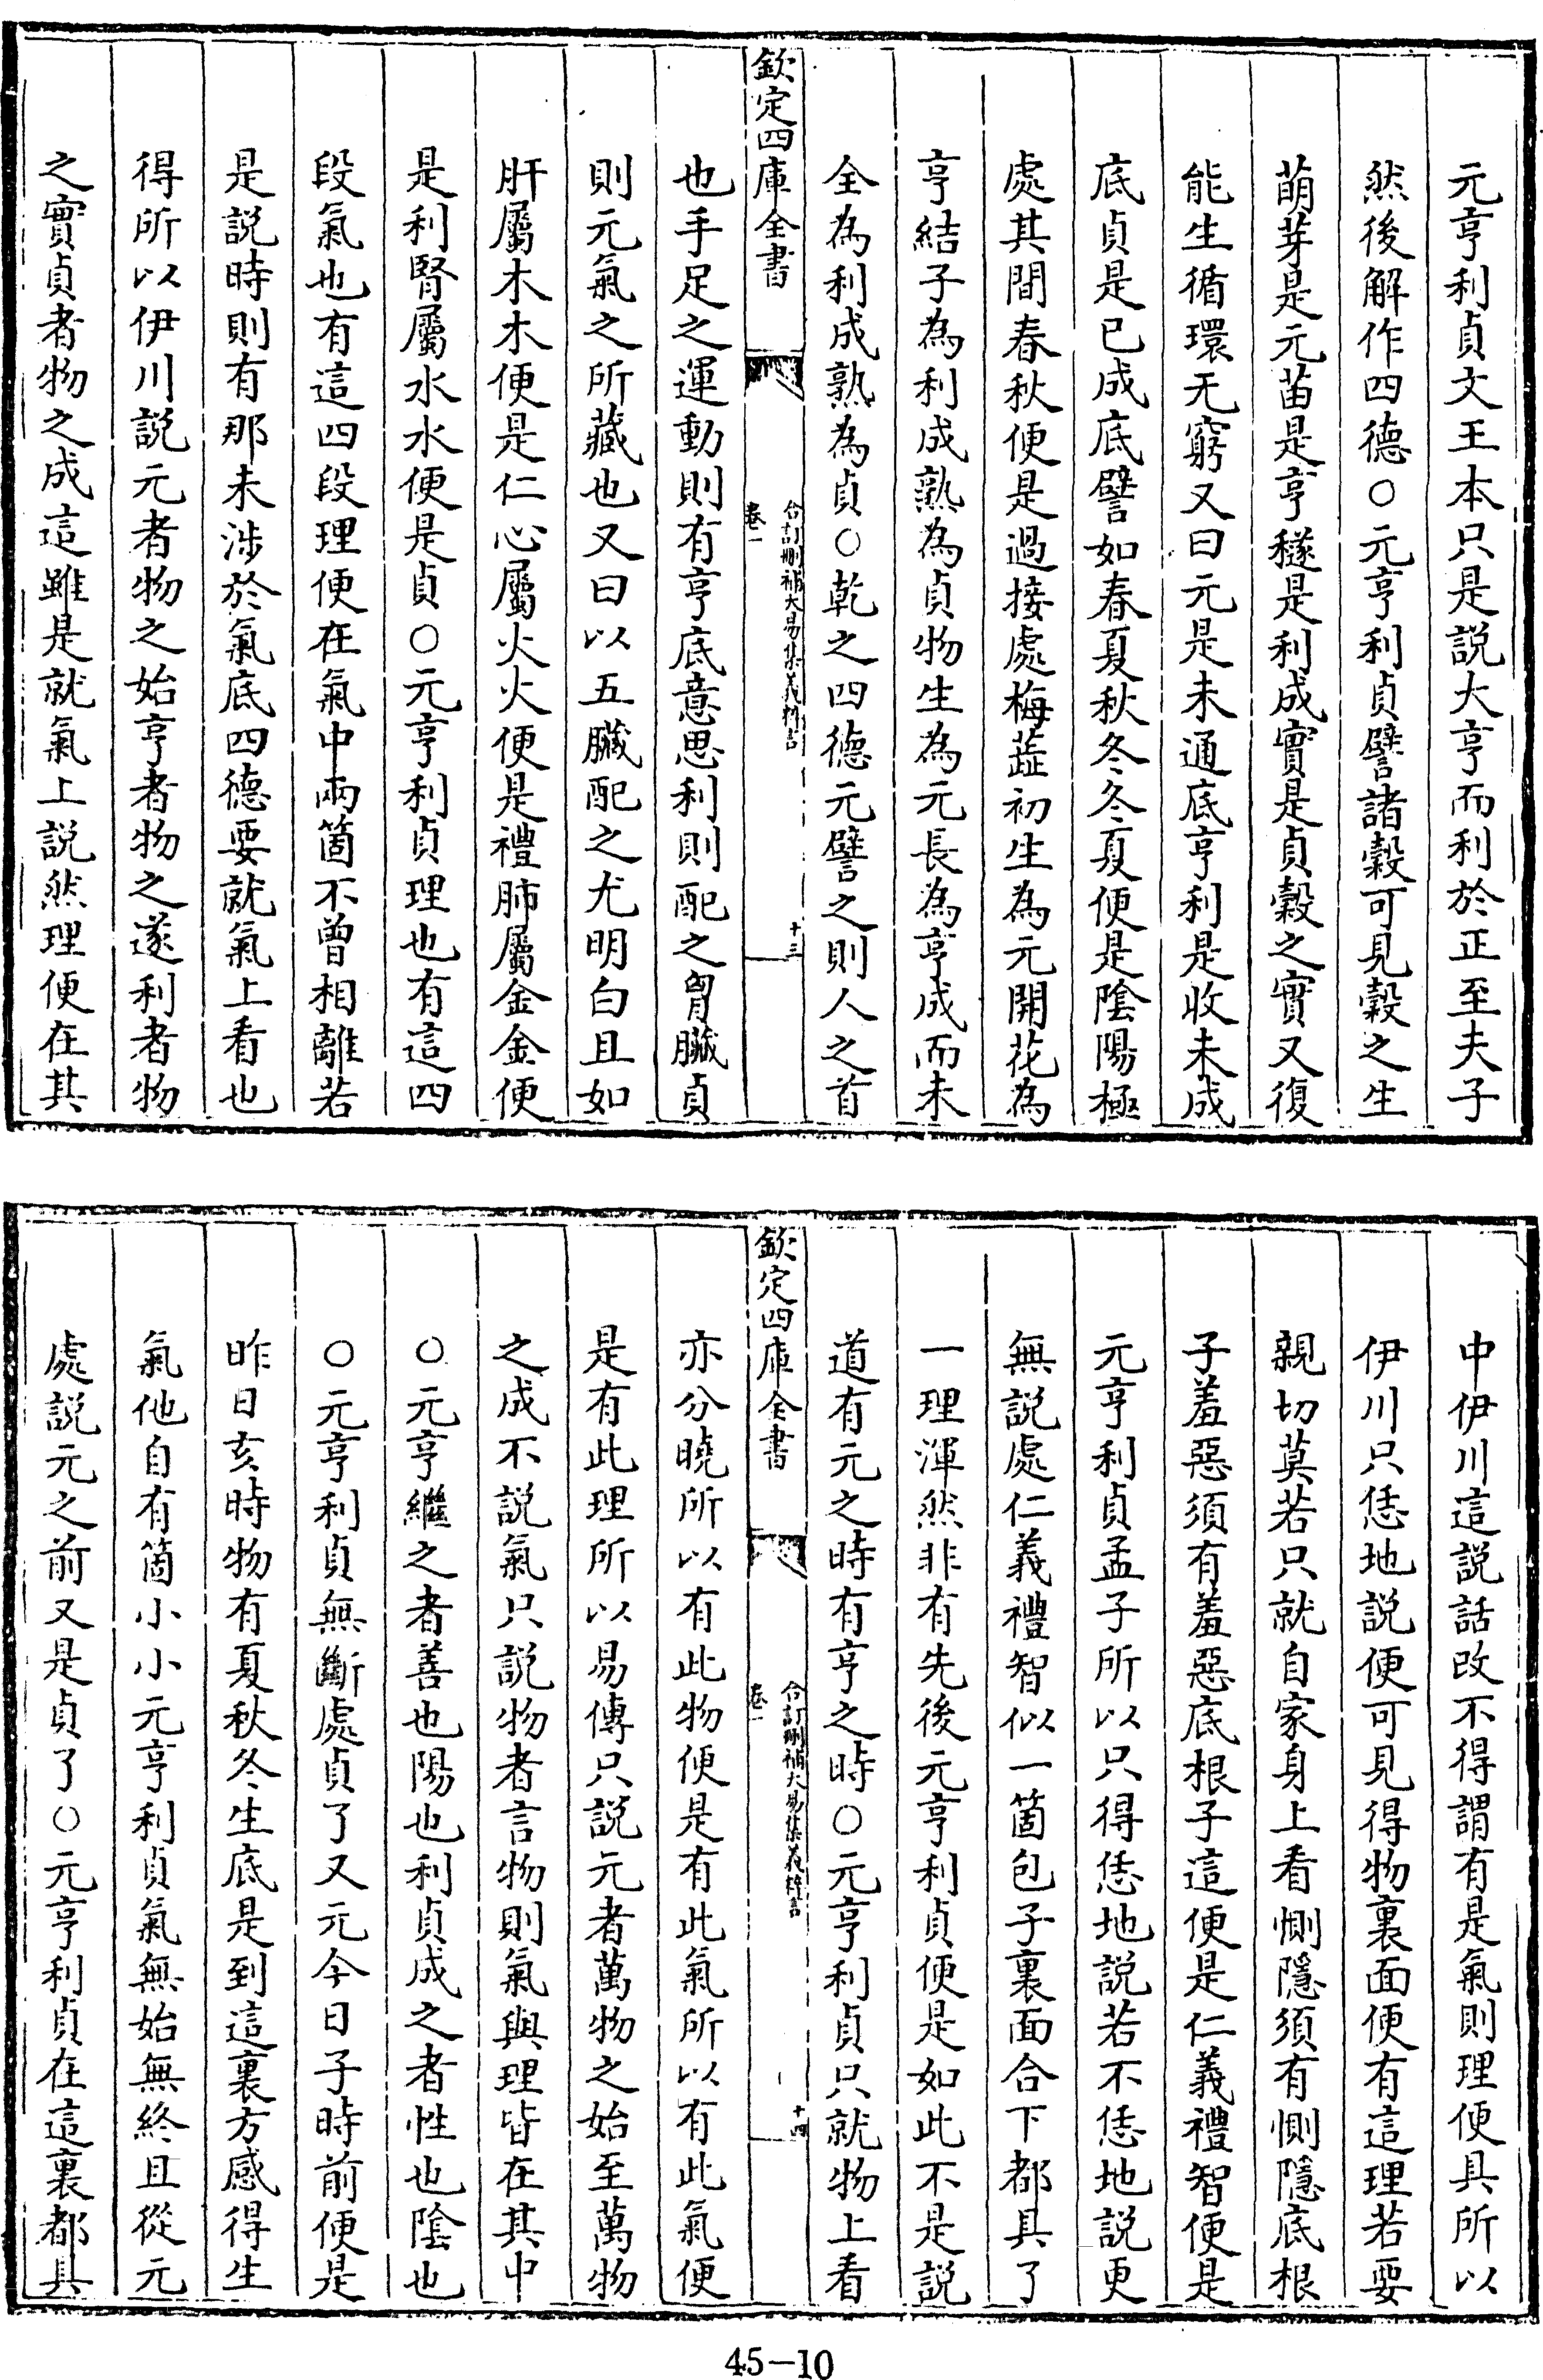 元亨利貞文王本只是説大亨而利於正至夫子
然後解作四德○元亨利貞譬諸穀可見穀之生
萌芽是元苗是亨穟是利成實是貞穀之實又復
能生循環无窮又曰元是未通底亨利是收未成
底貞是已成底譬如春夏秋冬冬夏便是陰陽極
處其間春秋便是過接處梅蕋初生為元開花為
亨結子為利成熟為貞物生為元長為亨成而未
全為利成熟為貞○乾之四德元譬之則人之首
欽定四庫全書
合訂刪補大易集義粹言
卷一
十三
也手足之運動則有亨底意思利則配之胷臟貞
則元氣之所藏也又曰以五臟配之尤明白且如
肝屬木木便是仁心屬火火便是禮肺屬金金便
是利腎屬水水便是貞○元亨利貞理也有這四
段氣也有這四段理便在氣中兩箇不曾相離若
是説時則有那未涉於氣底四德要就氣上看也
得所以伊川説元者物之始亨者物之遂利者物
之實貞者物之成這雖是就氣上説然理便在其
中伊川這説話改不得謂有是氣則理便具所以
伊川只恁地説便可見得物裏面便有這理若要
親切莫若只就自家身上看惻隱須有惻隱底根
子羞惡須有羞惡底根子這便是仁義禮智便是
元亨利貞孟子所以只得恁地説若不恁地説更
無説處仁義禮智似一箇包子裏面合下都具了
一理渾然非有先後元亨利貞便是如此不是説
道有元之時有亨之時○元亨利貞只就物上看
欽定四庫全書
合訂刪補大易集義粹言
卷一
十四
亦分曉所以有此物便是有此氣所以有此氣便
是有此理所以易傳只説元者萬物之始至萬物
之成不説氣只説物者言物則氣與理皆在其中
○元亨繼之者善也陽也利貞成之者性也陰也
○元亨利貞無斷處貞了又元今日子時前便是
昨日亥時物有夏秋冬生底是到這裏方感得生
氣他自有箇小小元亨利貞氣無始無終且從元
處説元之前又是貞了○元亨利貞在這裏都具
45-10